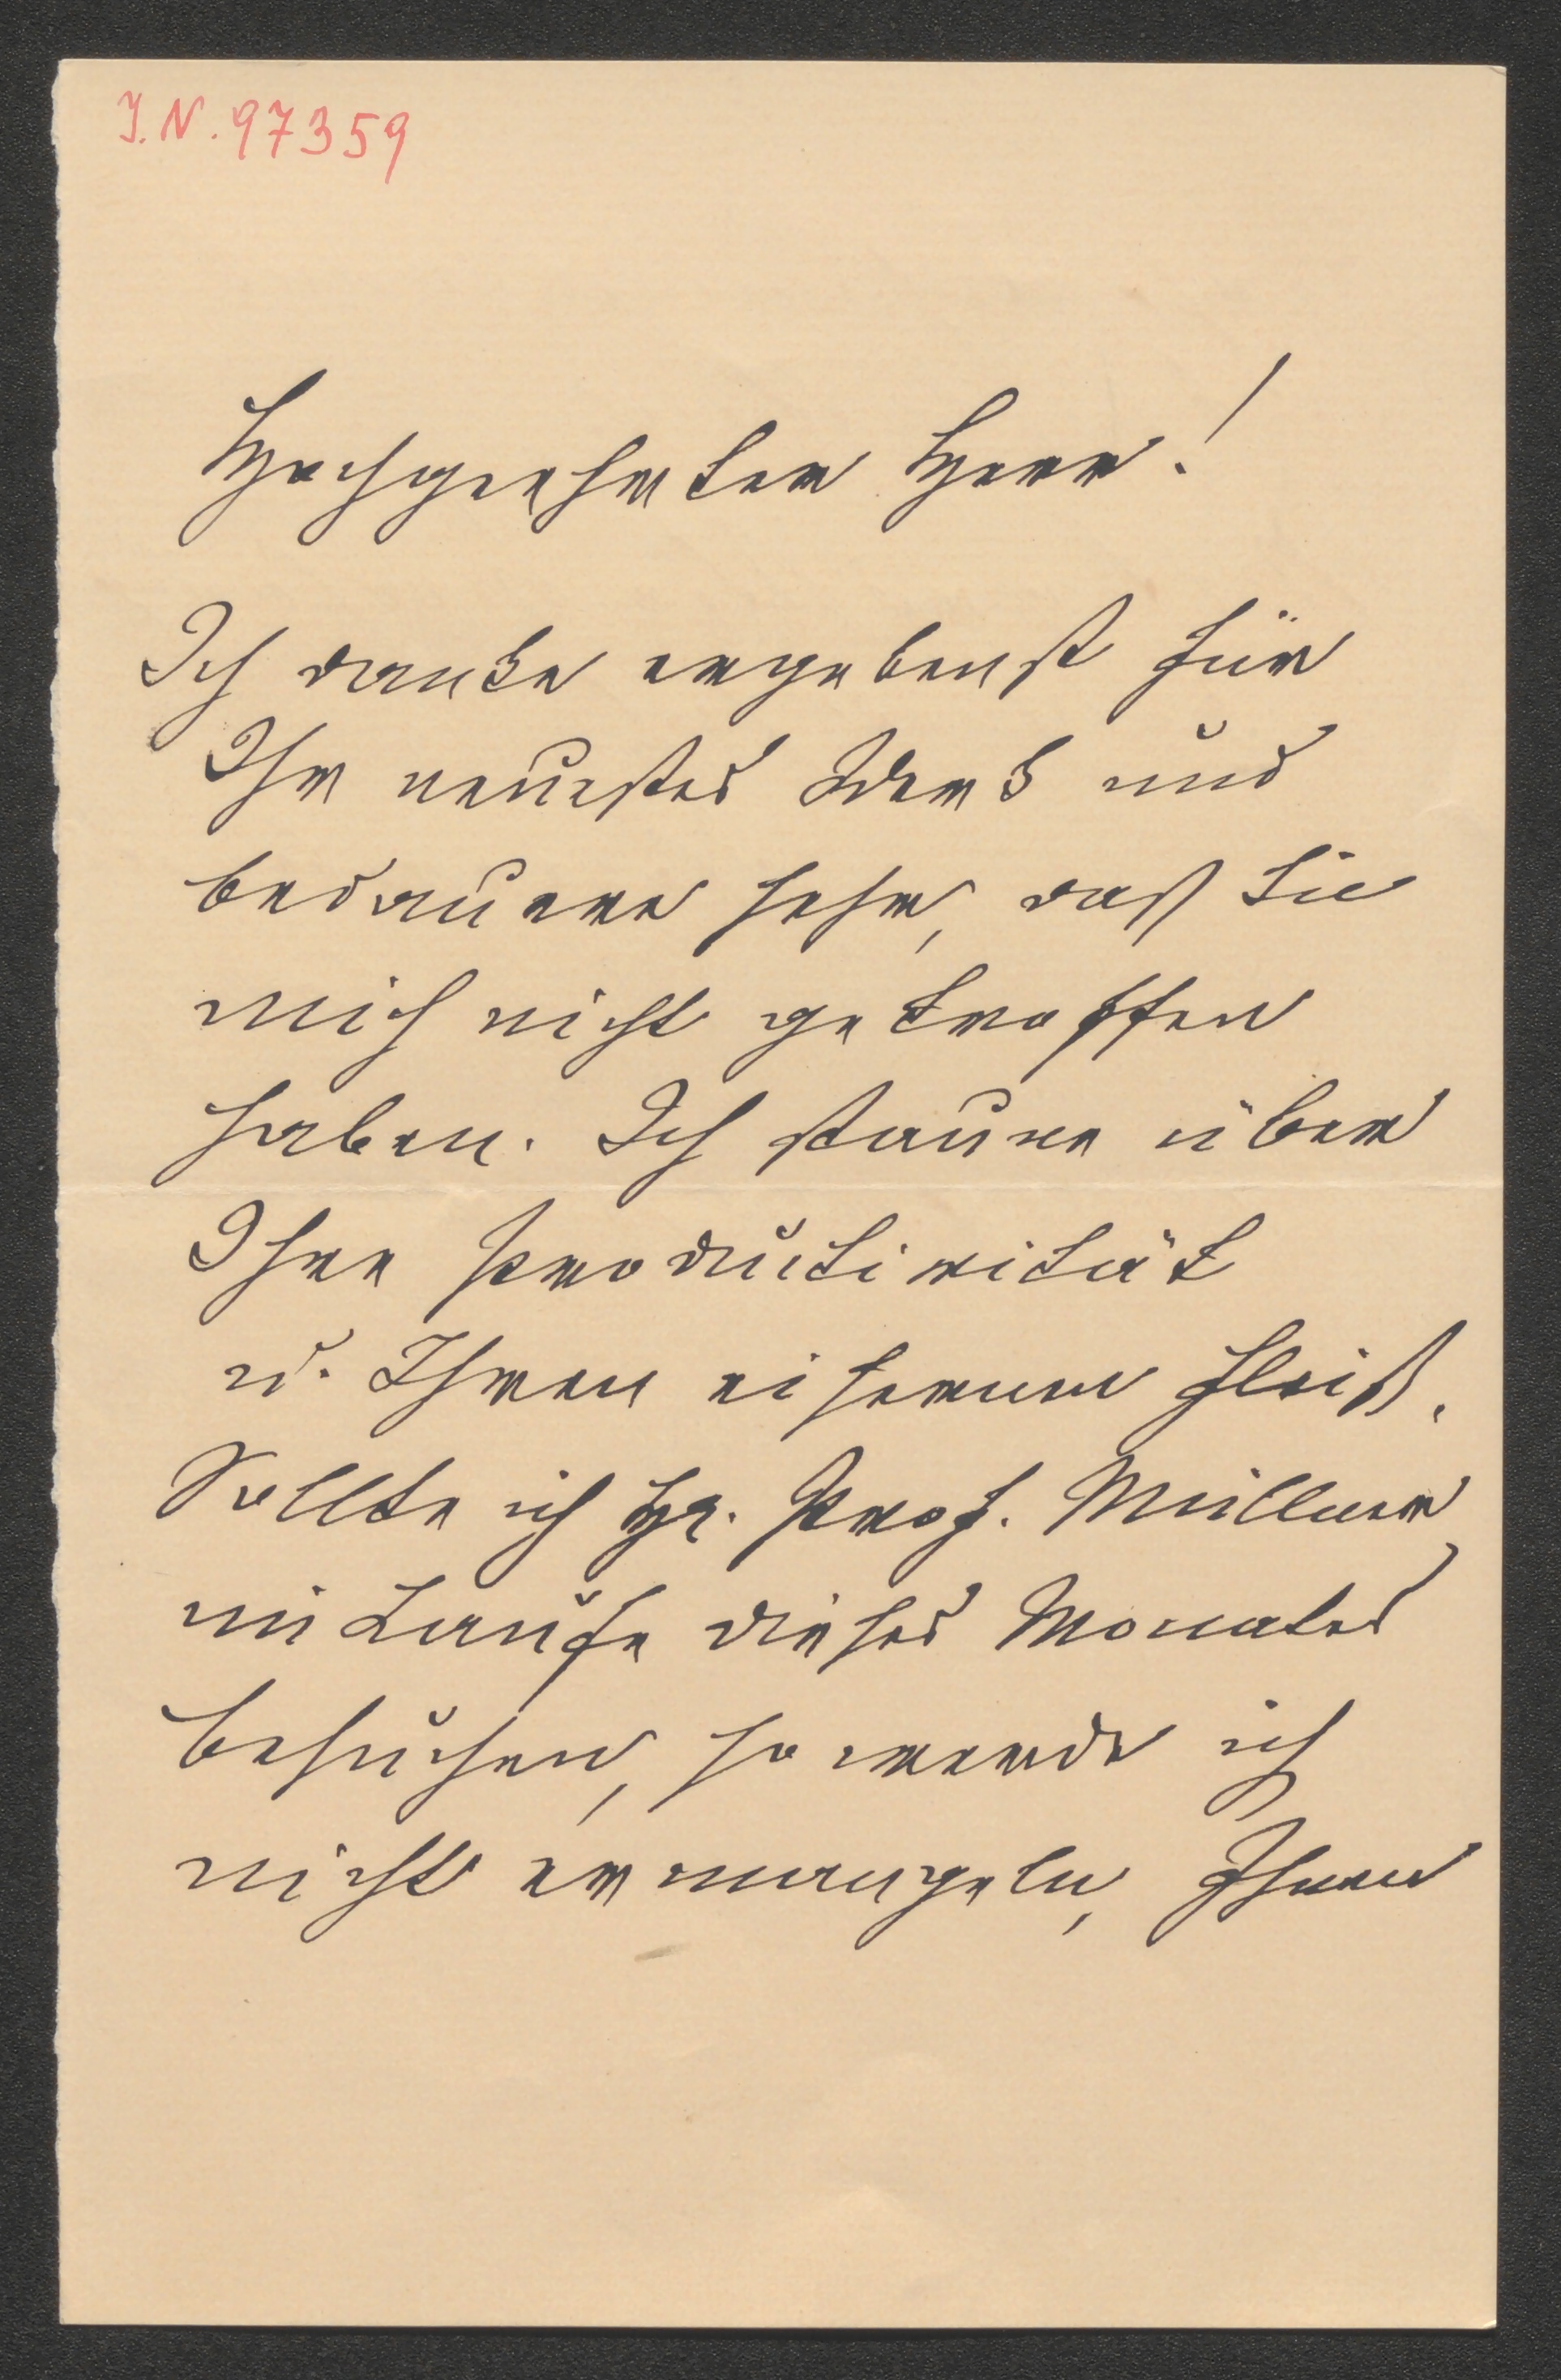 J.N. 97359
Hochgeehrter Herr!
Ich danke ergebenst für
Ihr neuestes Werk und
bedauere sehr, daß Sie
mich nicht getroffen
haben. Ich staune über
Ihre Productivität
u. Ihren eisernen Fleiß.
Sollte ich Hr. Prof. Müllner
im Laufe dieses Monates
besuchen, so werde ich
nicht ermangeln, Ihnen